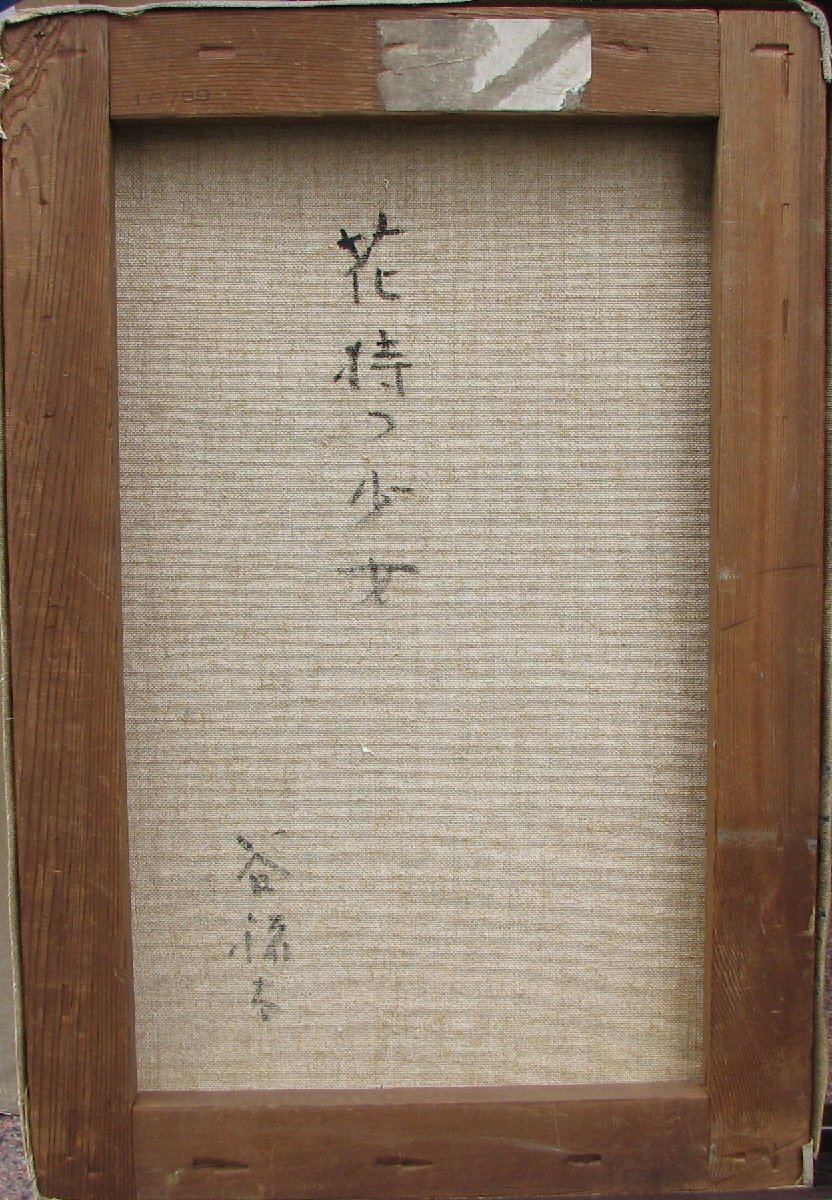 花持つ少女
谷
10789